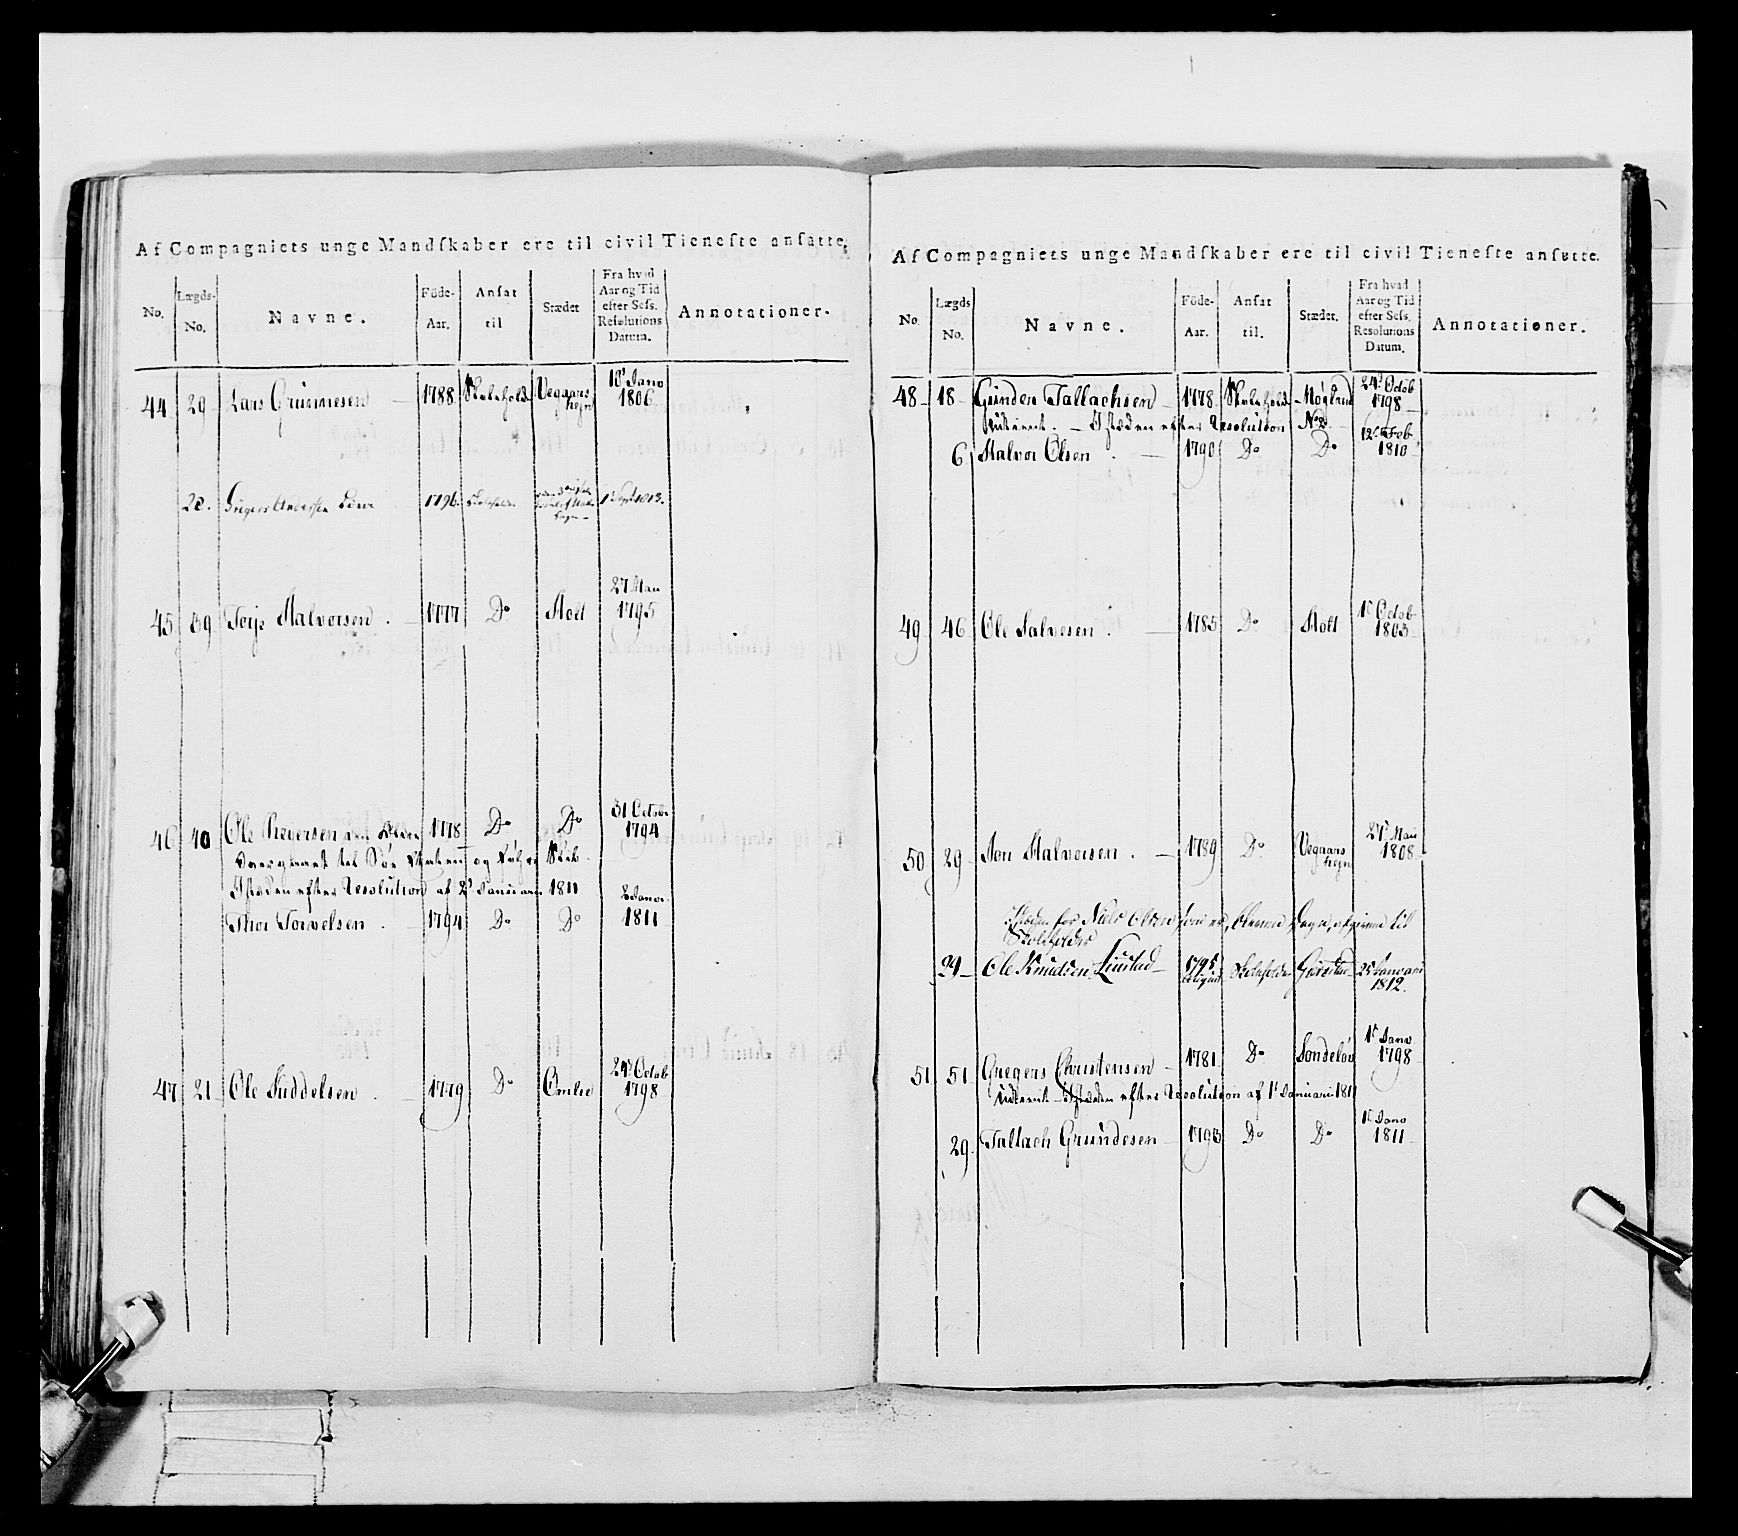 Af Compagniets unge Mandſkaber ere til civil Tieneſte anſatte.
No. Lægds-No. Navne. Föde-Aar. Anſat til Stædet Fra hvad Aar og Tid efter Seſſ. Reſolutions Datum. Annotationer.
44 29 Lars Grunnesen 1788 Skoleholder Vegaars hejn 10d Janv 1806
28. Gregers Andersen 1796. Skoleholder 1 Sept 1813.
45 39 Terje Halvorsen . 1777 Do Holt 27 Mau 1795
46 40 Ole Reiersen den Ælden 1778 Do Do 31 Octobr 1794
Overgaaet til Söe
Istæden efter Resolution af 2d Januari 1811
Thor Torvelsen . 1794 Do Do 2 Janv. 1811
47 21 Ole Siddelsen . 1779 Do Omlie 24d Octob 1798
Af Compagniets unge Mandſkaber ere til civil Tieneſte anſatte.
No. Lægds No. Navne. Föde-Aar. Anſat til. Stædet. Fra hvad Aar og Tid efter Seſſ. Reſolutions Datum. Annotationer.
48 18 Gunden Tallachsen 1778 Skoleholder Moglund 24d Octob 1798
Udtient. - Istæden efter Resolution No 2 12te Feb
6 Halvor Olsen . 1790 Do Do 1810
49 46 Ole Salvesen . 1785 Do Holt 1d Octob 1803
50 29 Jon Halvorsen . 1789 Do Vegaars hejn 27d Mau 1808
Istæden for Niels Olsen som er
Skoleholder
29 Ole Knudsen Liustad 1795 Skoleholder Gierestad 25 Januari 1812.
51 51 Gregers Christensen 1781 Do Söndeløv 1d Janv 1798
Udtient istæden efter Resolution af 1d Januari 1811
29 Tallach Grundesen 1793 Do Do 1d Janv 1811